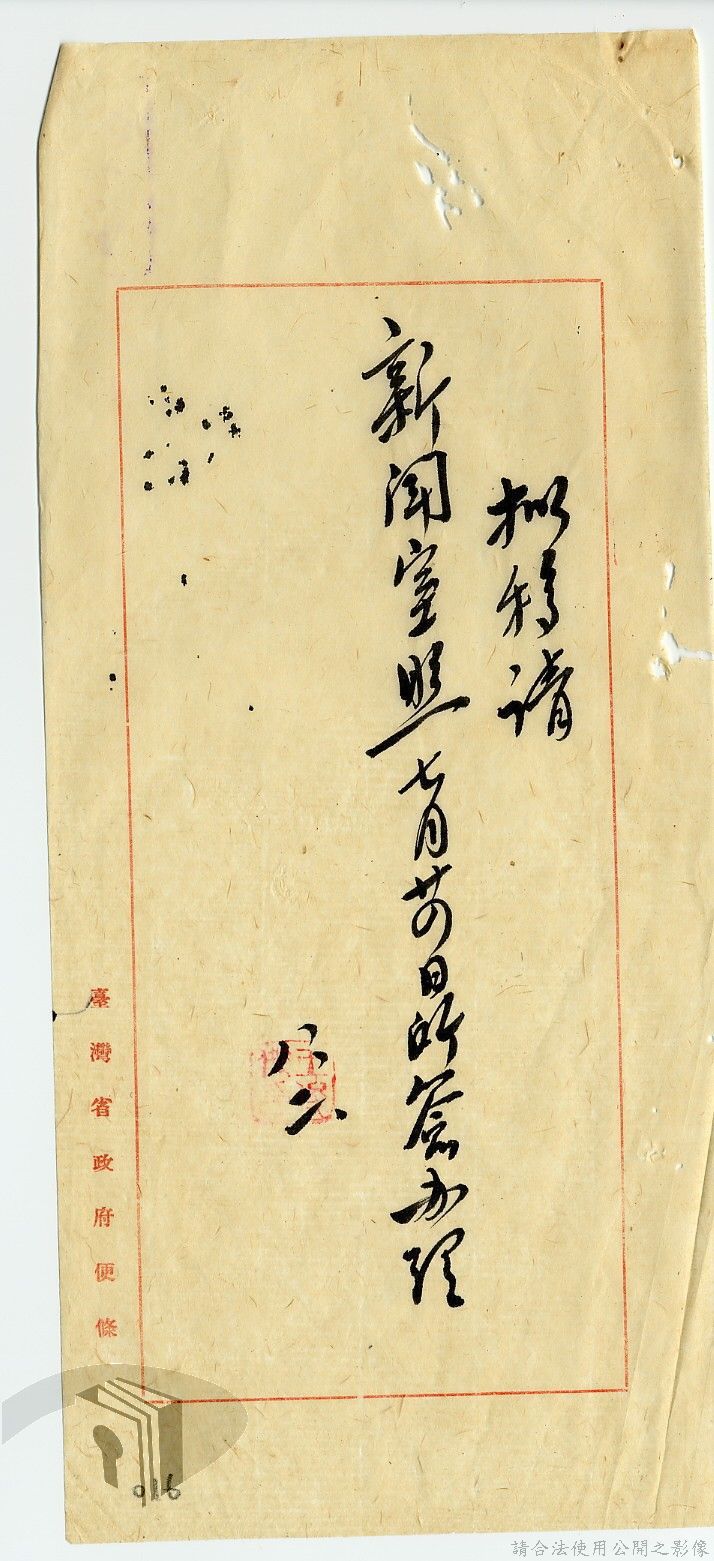 拟稿請
新聞室照七月廿四日所簽办理
八、二
臺灣省政府便條
016
請合法使用公開之影像